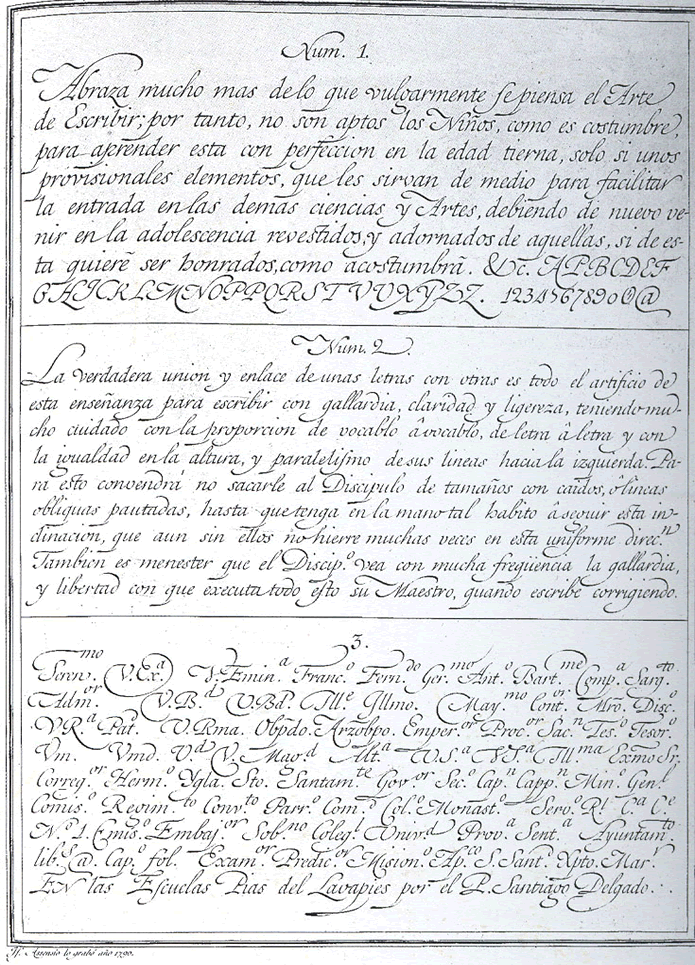 Num. 1.
Abraza mucho mas delo que vulgarmente se piensa el Arte
de Escribir; por tanto, no son aptos los Niños, como es costumbre,
para aprender esta con perfeccion en la edad tierna, solo si unos
provisionales elementos, que les sirvan de medio para facilitar
la entrada en las demas ciencias y Artes, debiendo de nuevo ve-
nir en la adolescencia revestidos, y adornados de aquellas, si de es-
ta quierẽ ser honrados, como acostumbrã. &c. AABCDEF
GHIJKLMNOPPQRSTVUXYZZ. 1234567890@
Num. 2.
La verdadera union y enlace de unas letras con otras es todo el artificio de
esta enseñanza para escribir con gallardia, claridad y ligereza, teniendo mu-
cho cuidado con la proporcion de vocablo â vocablo, de letra â letra y con
la igualdad en la altura, y paralelismo de sus lineas hacia la izquierda. Pa-
ra esto convendrà no sacarle al Discipulo de tamaños con caidos, ô lineas
obliquas pautadas, hasta que tenga en la mano tal habito â seguir esta in-
clinacion, que aun sin ellos no hierre muchas veces en esta uniforme direc.n
Tambien es menester que el Discip.o vea con mucha freqüencia la gallardia,
y libertad con que executa todo esto su Maestro, quando escribe corrigiendo.
3.
Seren.mo V.Ex.a V.Emin.a Franc.o Fern.do Ger.mo Ant.o Bart.me Comp.a Sarg.to
Adm.or V.B.d V.Bd. Ill.e Illmo. May.mo Cont.or Mro. Disc.o
V.R.a Pat. V.Rma. Obpdo. Arzobpo. Emper.or Proc.or Sac.n Tes.o Tesor.o
Vm. Vmd. V.d V. Mag.d Alt.a V.S.a V.S.a Ill.ma Exmo Sr.
Correg.or Herm.o Ygla. Sto. Santam.te Gov.or Sec.o Cap.n Capp.n Min.o Gen.l
Comis.o Regim.to Conv.to Parr.o Com.d Col.o Monast.o Serv.o R.l C.a C.e
N.o 1. Emis.o Embaj.or Sob.no Coleg.l Univ.d Prov.a Sent.a Ayuntam.to
lib.s @. Cap.o fol. Exam.or Predic.or Mision.o Ap.co S. Sant.o Xpto. Mar.
EN las Escuelas Pias del Lavapies por el P. Santiago Delgado.
Asensio lo grabó año 1790.